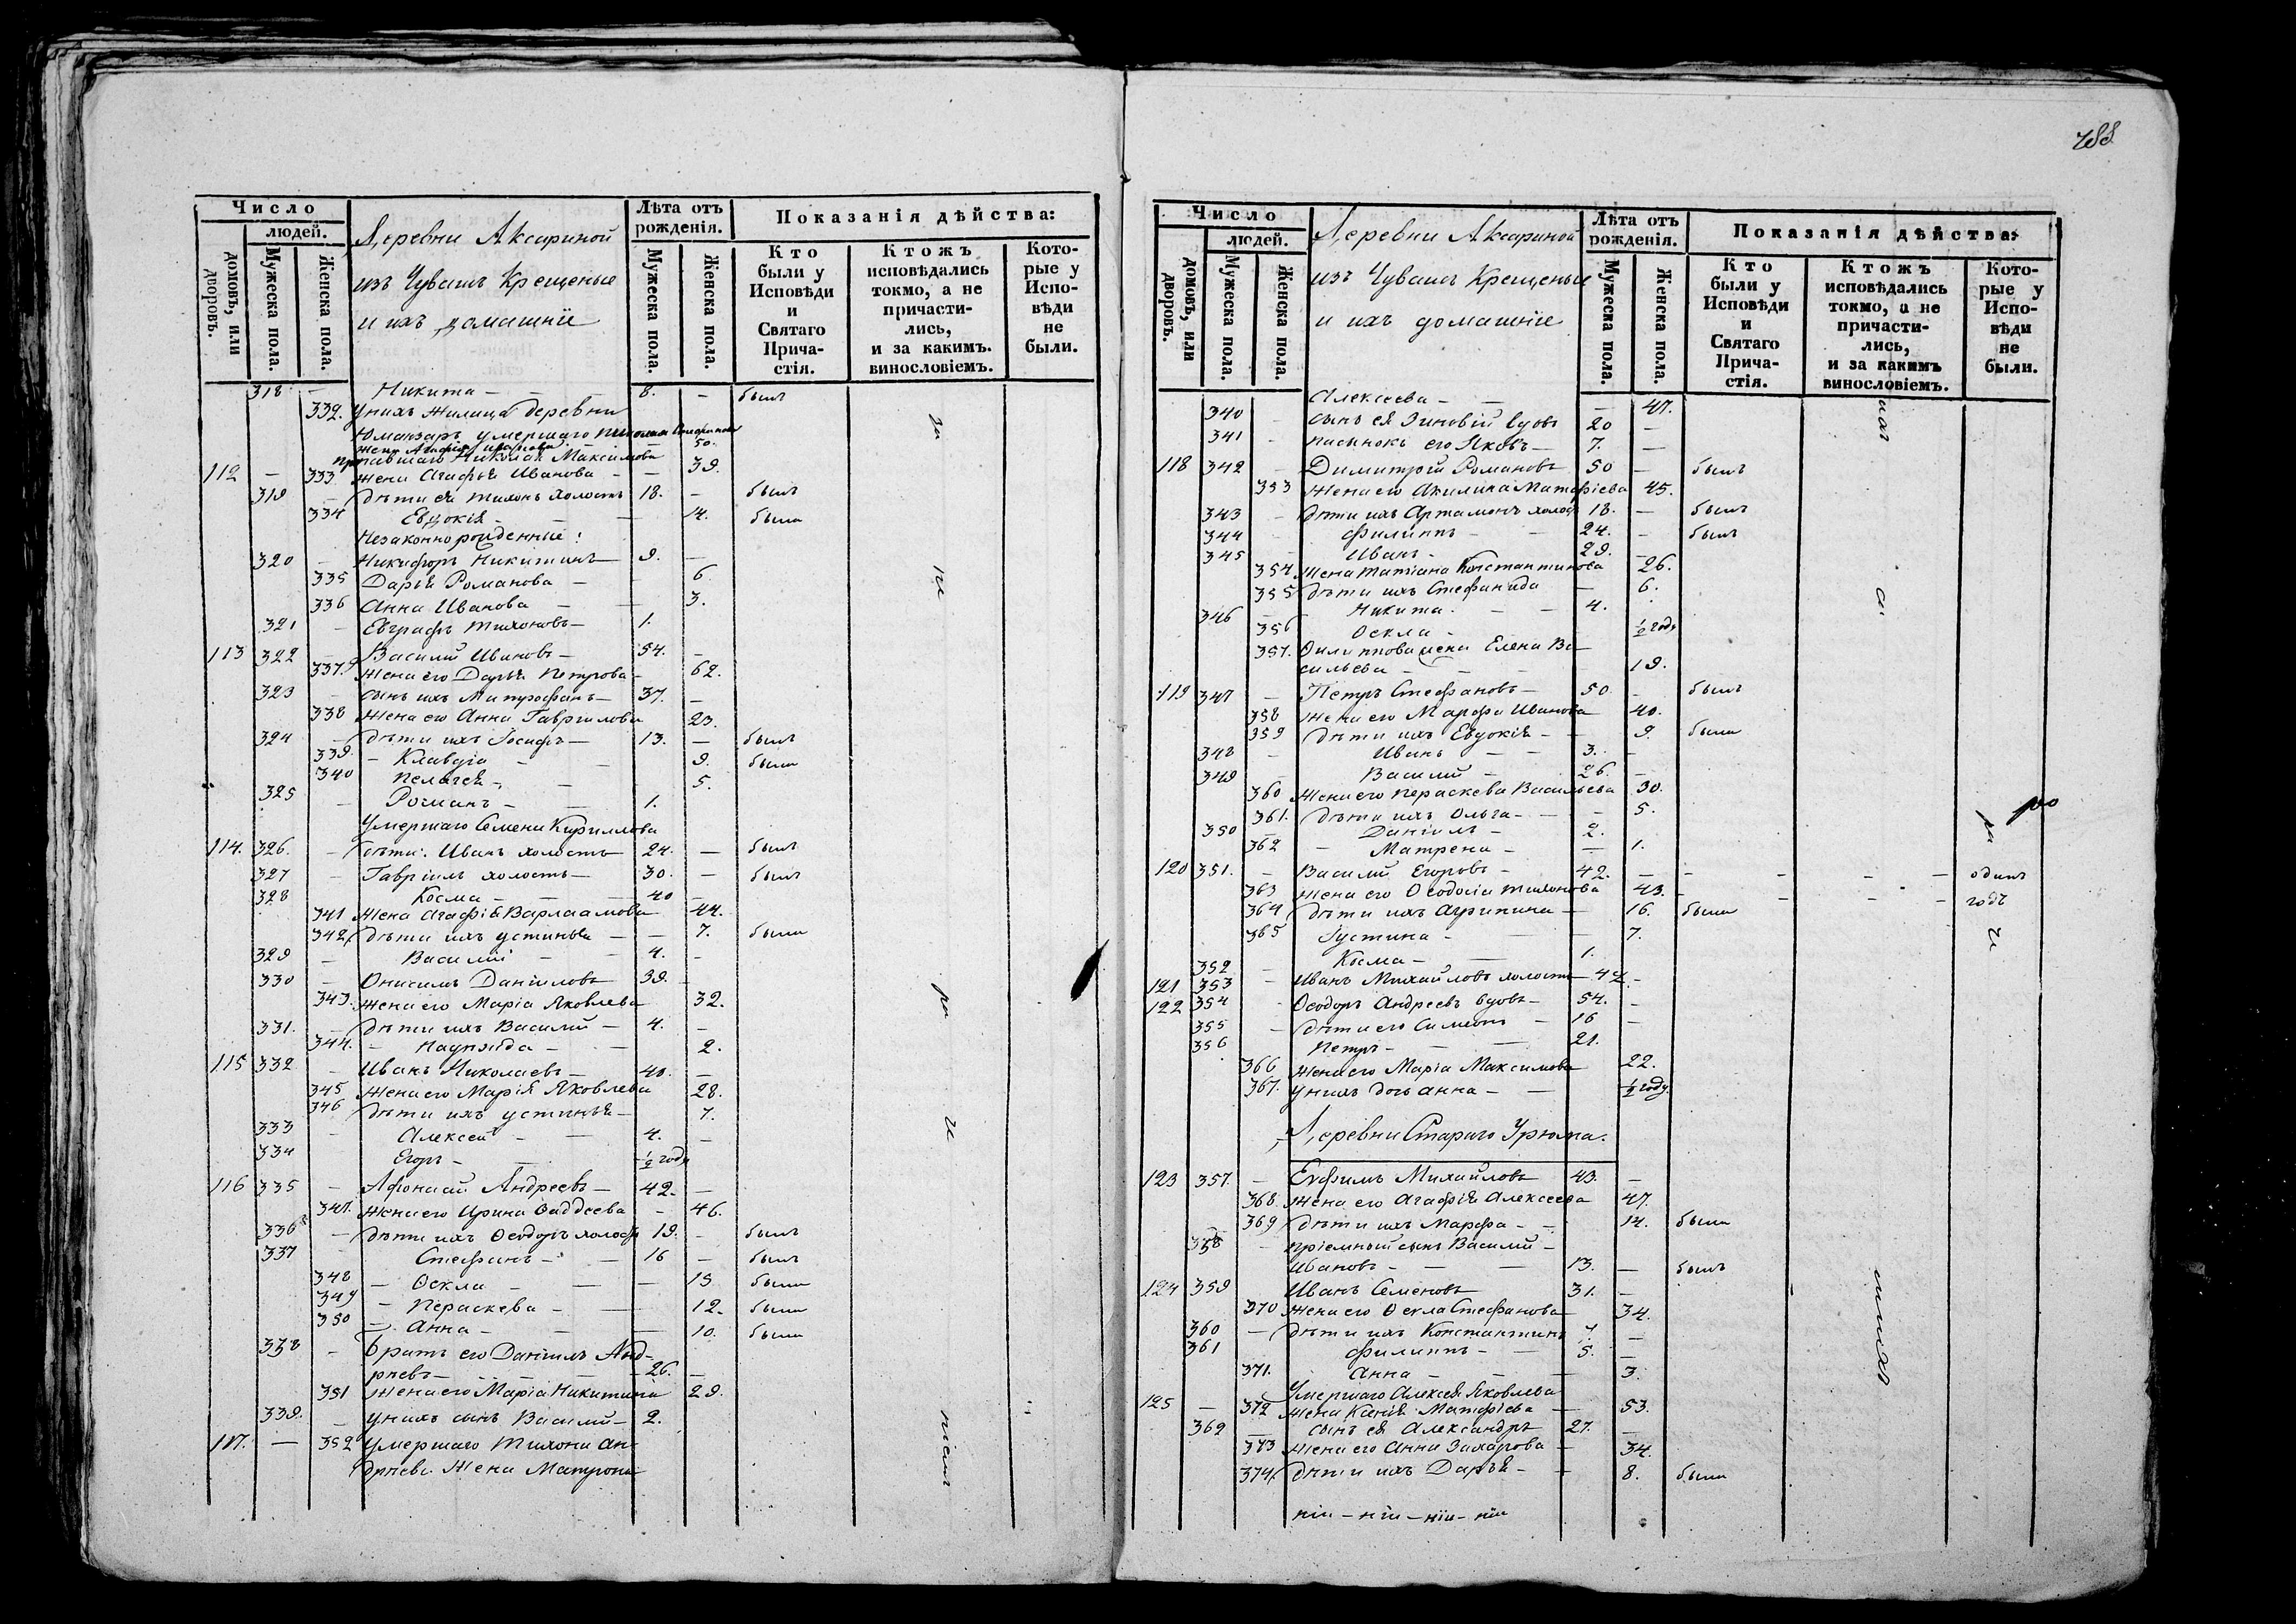 Число
людей.
домовъ, или дворовъ.
Мужеска пола.
Женска пола.
Деревни Аксариной
изъ Чувашъ Крещеные
и ихъ домашніе
Лѣта отъ рожденія.
Мужеска пола.
Женска пола.
Показанія дѣйства:
Кто были у Исповѣди и Святаго Прича-стія.
Ктожъ исповѣдались токмо, а не причасти-лись, и за какимъ. винословіемъ.
Кото-рые у Испо-вѣди не были.
318 — Никита — 8. — былъ
332. у нихъ жилица деревни
умершаго
жена Агафья 50.
Николая Максимова
112 — 333 жена Агафья Иванова — 39.
319 — дѣти ея Тихонъ холостъ 18. — былъ
334 Евдокія — 14. была
Незаконнорожденные:
320 — Никифоръ Никитинъ — 9. —
335 Дарья Романова — 6
336 Анна Иванова — 3.
321 — Евграфъ Тихоновъ — 1.
113 322 — Василій Ивановъ — 54. —
337. жена его Дарья Петрова — 62.
323 — сынъ ихъ Митрофанъ — 37. —
338 жена его Анна Гаврилова 23.
324 — дѣти ихъ Іосифъ — 13. — былъ
339. — Клавдія — 9. была
340 Пелагея — 5.
325 — Романъ — 1.
Умершаго Семена Кириллова
114. 326. — дѣти: Иванъ холостъ 24. — былъ
327 — Гавріилъ холостъ — 30. — былъ
328 Косма — 40 —
341 жена Агафія Варлаамова 44.
342 дѣти ихъ Устинья — 7. была
329 — Василій — 4. —
330 — Онисимъ Даниловъ 39. —
343. жена его Марія Яковлева 32.
331. — дѣти ихъ Василій — 4. —
344. — 2.
115 332 — Иванъ Николаевъ — 40. —
345 жена его Марія Яковлева 28.
346 дѣти ихъ Устинья — 7.
333 — Алексей — 4. —
334 Егоръ — ½ года
116 335 — Афонасій Андреевъ — 42. —
347. жена его Ирина Фаддеева — 46.
336 — дѣти ихъ Ѳеодоръ холостъ 19. — былъ
337 Стефанъ — 16 — былъ
348 — Ѳекла — 15 была
349 — Пераскева — 12. была
350 — Анна — 10. была
338 — братъ его Даніилъ Анд-
реевъ — 26. —
351 жена его Марія Никитина 29.
339. — у нихъ сынъ Василій — 2.
117. — 352 умершаго Тихона Ан-
дреева жена Матрона
за
и
ри
и
288
Число
людей.
домовъ, или дворовъ.
Мужеска пола.
Женска пола.
Деревни Аксариной
изъ Чувашъ Крещеные
и ихъ домашніе
Лѣта отъ рожденія.
Мужеска пола.
Женска пола.
Показанія дѣйства:
Кто были у Исповѣди и Святаго Прича-стія.
Ктожъ исповѣдались токмо, а не причасти-лись, и за какимъ винословіемъ.
Кото-рые у Испо-вѣди не были.
Алексеева — 47.
340 — сынъ ея Зиновій вдовъ 20 —
341 — пасынокъ его Яковъ — 7. —
118 342 — Димитрій Романовъ 50 — былъ
353 жена его Акилина Матфіева 45.
343 — дѣти ихъ Артамонъ холостъ 18. — былъ
344 — Филиппъ — 24. — былъ
345 — Иванъ — 29. —
354 жена Татіана Константинова 26.
355 дѣти ихъ Стефанида — 6.
346 — Никита — 4.
356 Ѳекла — ½ года
357. Филиппова жена Елена Ва-
сильева — 19.
119 347 — Петръ Стефановъ — 50. — былъ
358 жена его Марфа Иванова 40.
359 дѣти ихъ Евдокія — 9. была
348 — Иванъ — 3. —
349 — Василій — 26. —
360 жена его Пераскева Васильева 30.
361. дѣти ихъ Ольга — 5.
350 — Даніилъ — 2.
362 — Матрена — 1.
120 351. — Василій Егоровъ — 42. — — — одинъ
363 жена его Ѳеодосія Тихонова 43. — — — годъ
364 дѣти ихъ Агрипина — 16. была
365 Іустина — 7.
352 — Косма — 1.
121 353 — Иванъ Михайловъ холостъ — 42 —
122 354 — Ѳеодоръ Андреевъ вдовъ — 54. —
355 — дѣти его Симеонъ — 16 —
356 Петръ — 21.
366 жена его Марія Максимова 22.
367. у нихъ дочь Анна — ½ году
Деревни Стараго Урюма.
123 357. — Ефимъ Михайловъ 43. —
368. жена его Агафія Алексеева 47.
369 дѣти ихъ Марфа — 14. была
358 — пріемный сынъ Василій —
Ивановъ — 13. — былъ
124 359 Иванъ Семеновъ 31. —
370 жена его Ѳекла Стефанова 34.
360 — дѣти ихъ Константинъ 7. —
361 Филиппъ — 5. —
371. Анна — 3.
Умершаго Алексея Яковлева
125 — 372 жена Ксенія Матфіева — 53.
362 — сынъ ея Александръ 27. —
373 жена его Анна Захарова — 34.
374 дѣти ихъ Дарья — 8. была
ніи — ніи — ніи — ніи